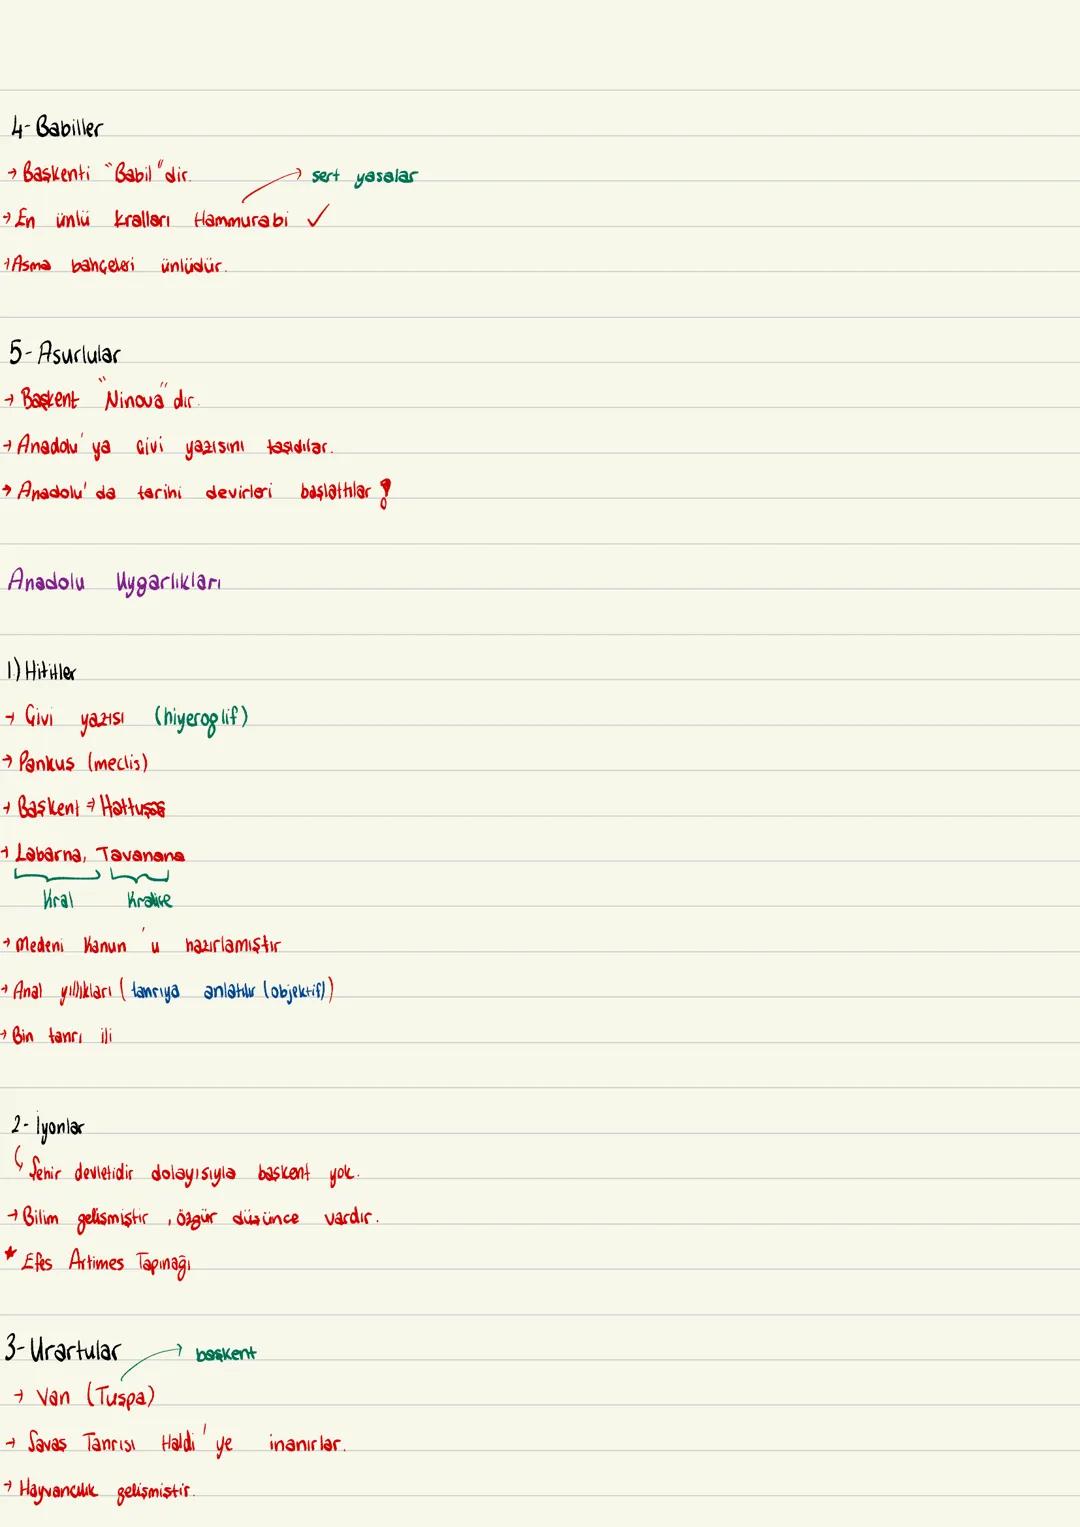 4- Babiller
→ Başkenti "Babil" dir.
→ sert yasalar
→ En ünlü kralları Hammurabi ✓
→ Asma bahçeleri ünlüdür.
5- Asurlular
→ Başkent "Ninova" dır.
→ Anadolu'ya Çivi yazısını taşıdılar.
→ Anadolu'da tarihi devirleri başlattılar !
Anadolu Uygarlıkları
1) Hititler
→ Çivi yazısı (hiyeroglif)
→ Pankuş (meclis)
→ Başkent → Hattuşaş
→ Labarna, Tavanana
Kral Kraliçe
→ Medeni Kanun'u hazırlamıştır
→ Anal yıllıkları (tanrıya anlatılır (objektif))
→ Bin tanrı ili
2- İyonlar
Şehir devletidir dolayısıyla başkent yok.
→ Bilim gelişmiştir, özgür düşünce vardır.
* Efes Artimes Tapınağı
3- Urartular
→ başkent
→ Van (Tuşpa)
→ Savaş Tanrısı Haldi'ye inanırlar.
→ Hayvancılık gelişmiştir.